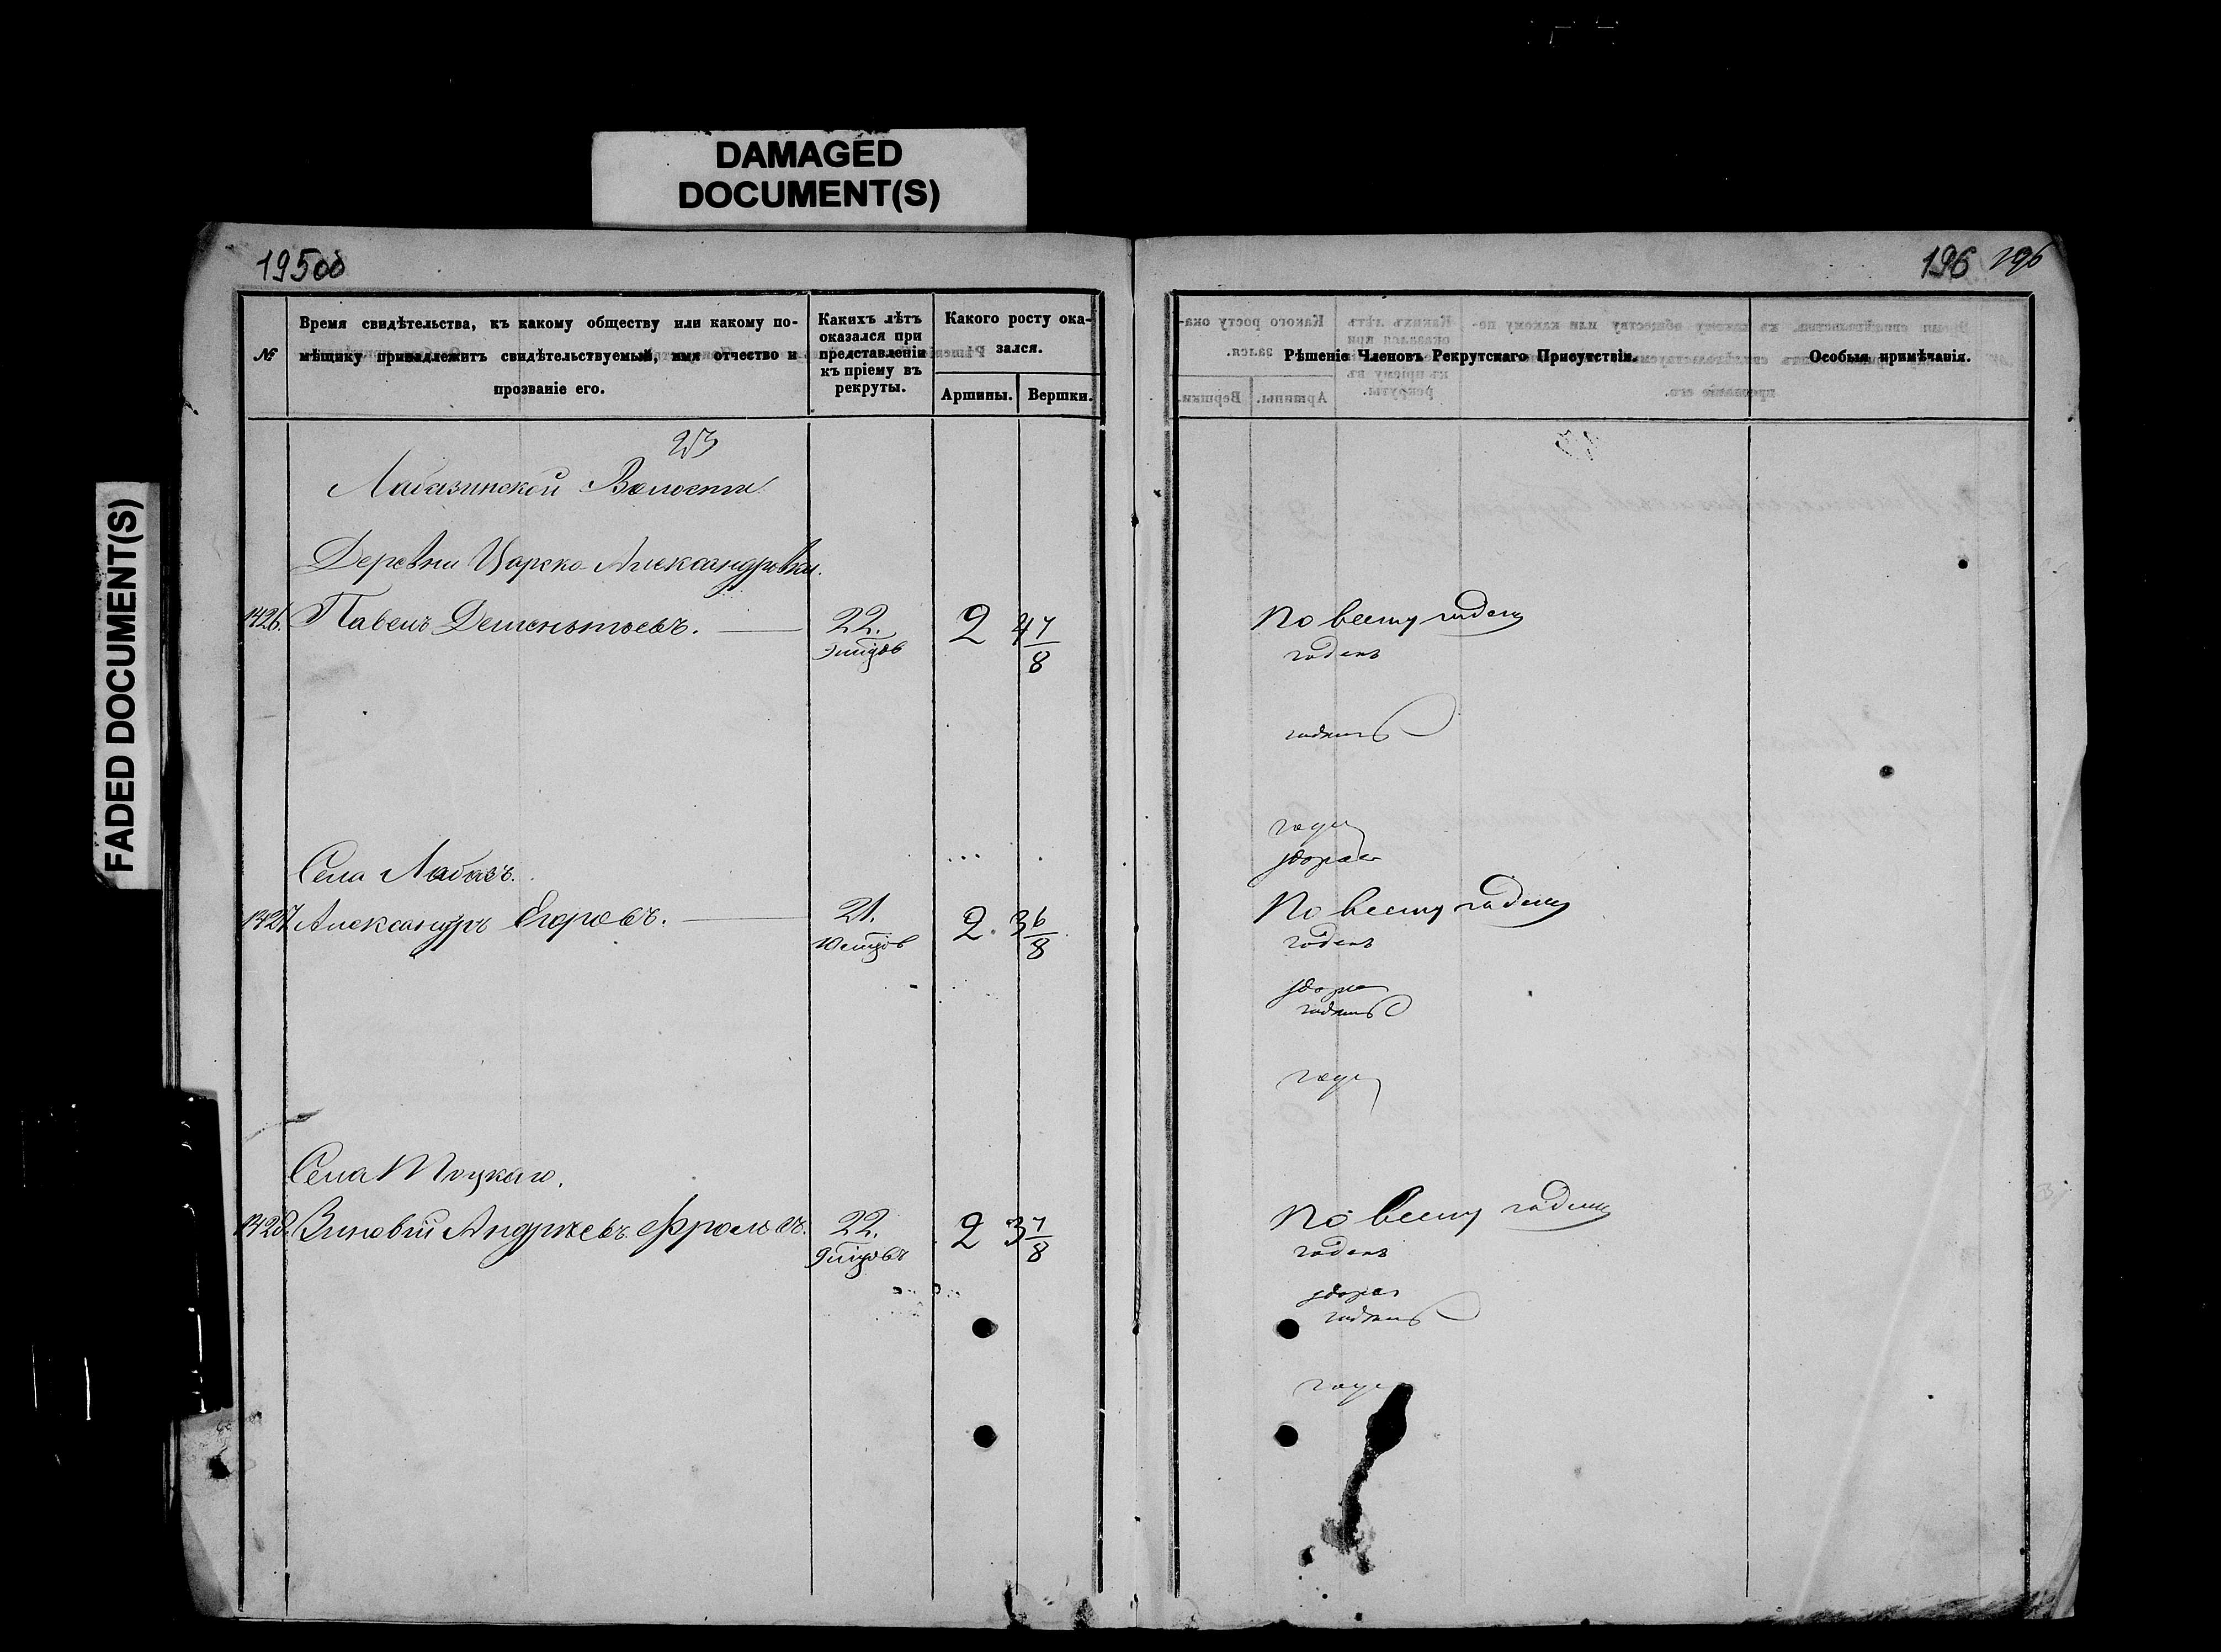 DAMAGED
DOCUMENT(S)
FADED DOCUMENT(S)
195об
№
Время свидѣтельства, къ какому обществу или какому по-
мѣщику принадлежитъ свидѣтельствуемый, имя отчество и
прозваніе его.
Какихъ лѣтъ
оказался при
представленіи
къ пріему въ
рекруты.
Какого росту ока-
зался.
Аршины.
Вершки.
Лабазинской Волости
Деревни Царско-Александровки.
1426. Павелъ Дементьевъ. 22. 2 4 7/8
Села Лабазъ.
1427 Александръ Егоровъ. 21. 2. 3 6/8
Села Тоцкаго.
1428. Зиновій Андреевъ Фроловъ. 22. 2 3 7/8
196 196
Рѣшеніе Членовъ Рекрутскаго Присутствія.
Особыя примѣчанія.
По всему годенъ
годенъ
годенъ
По всему годенъ
годенъ
годенъ
По всему годенъ
годенъ
годенъ